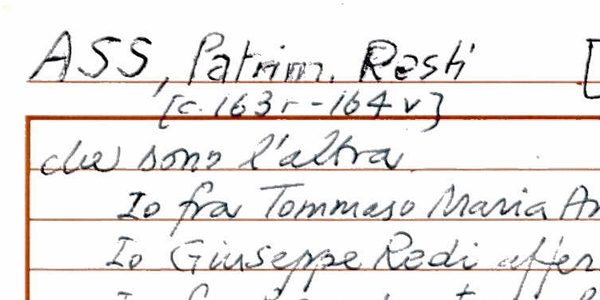 ASS, Patrim. Resti [
[c. 163 r - 164 v]
che sono l'altra
Io fra Tommaso Maria An
Io Giuseppe Redi affer
Io